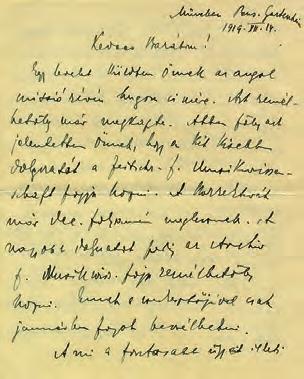 München Pens. Gartenheim
1919. XII. 14.
Kedves Barátom!
Egy levelet küldtem Önnek az angol
misszió révén húgom címére. Azt remél-
hetőleg már megkapta. Abban főleg azt
jelentettem Önnek, hogy a két kisebb
dolgozatát a Zeitschr. f. Musikwissen-
schaft fogja hozni. A korrektúrát
már Dec. folyamán meglesznek. A
nagyobb dolgozatot pedig az Archiv
f. Musikwiss. fogja remélhetőleg
hozni. Ennek a szerkesztőjével csak
januárban fogok beszélhetni.
A mi a fontosabb ügyet illeti